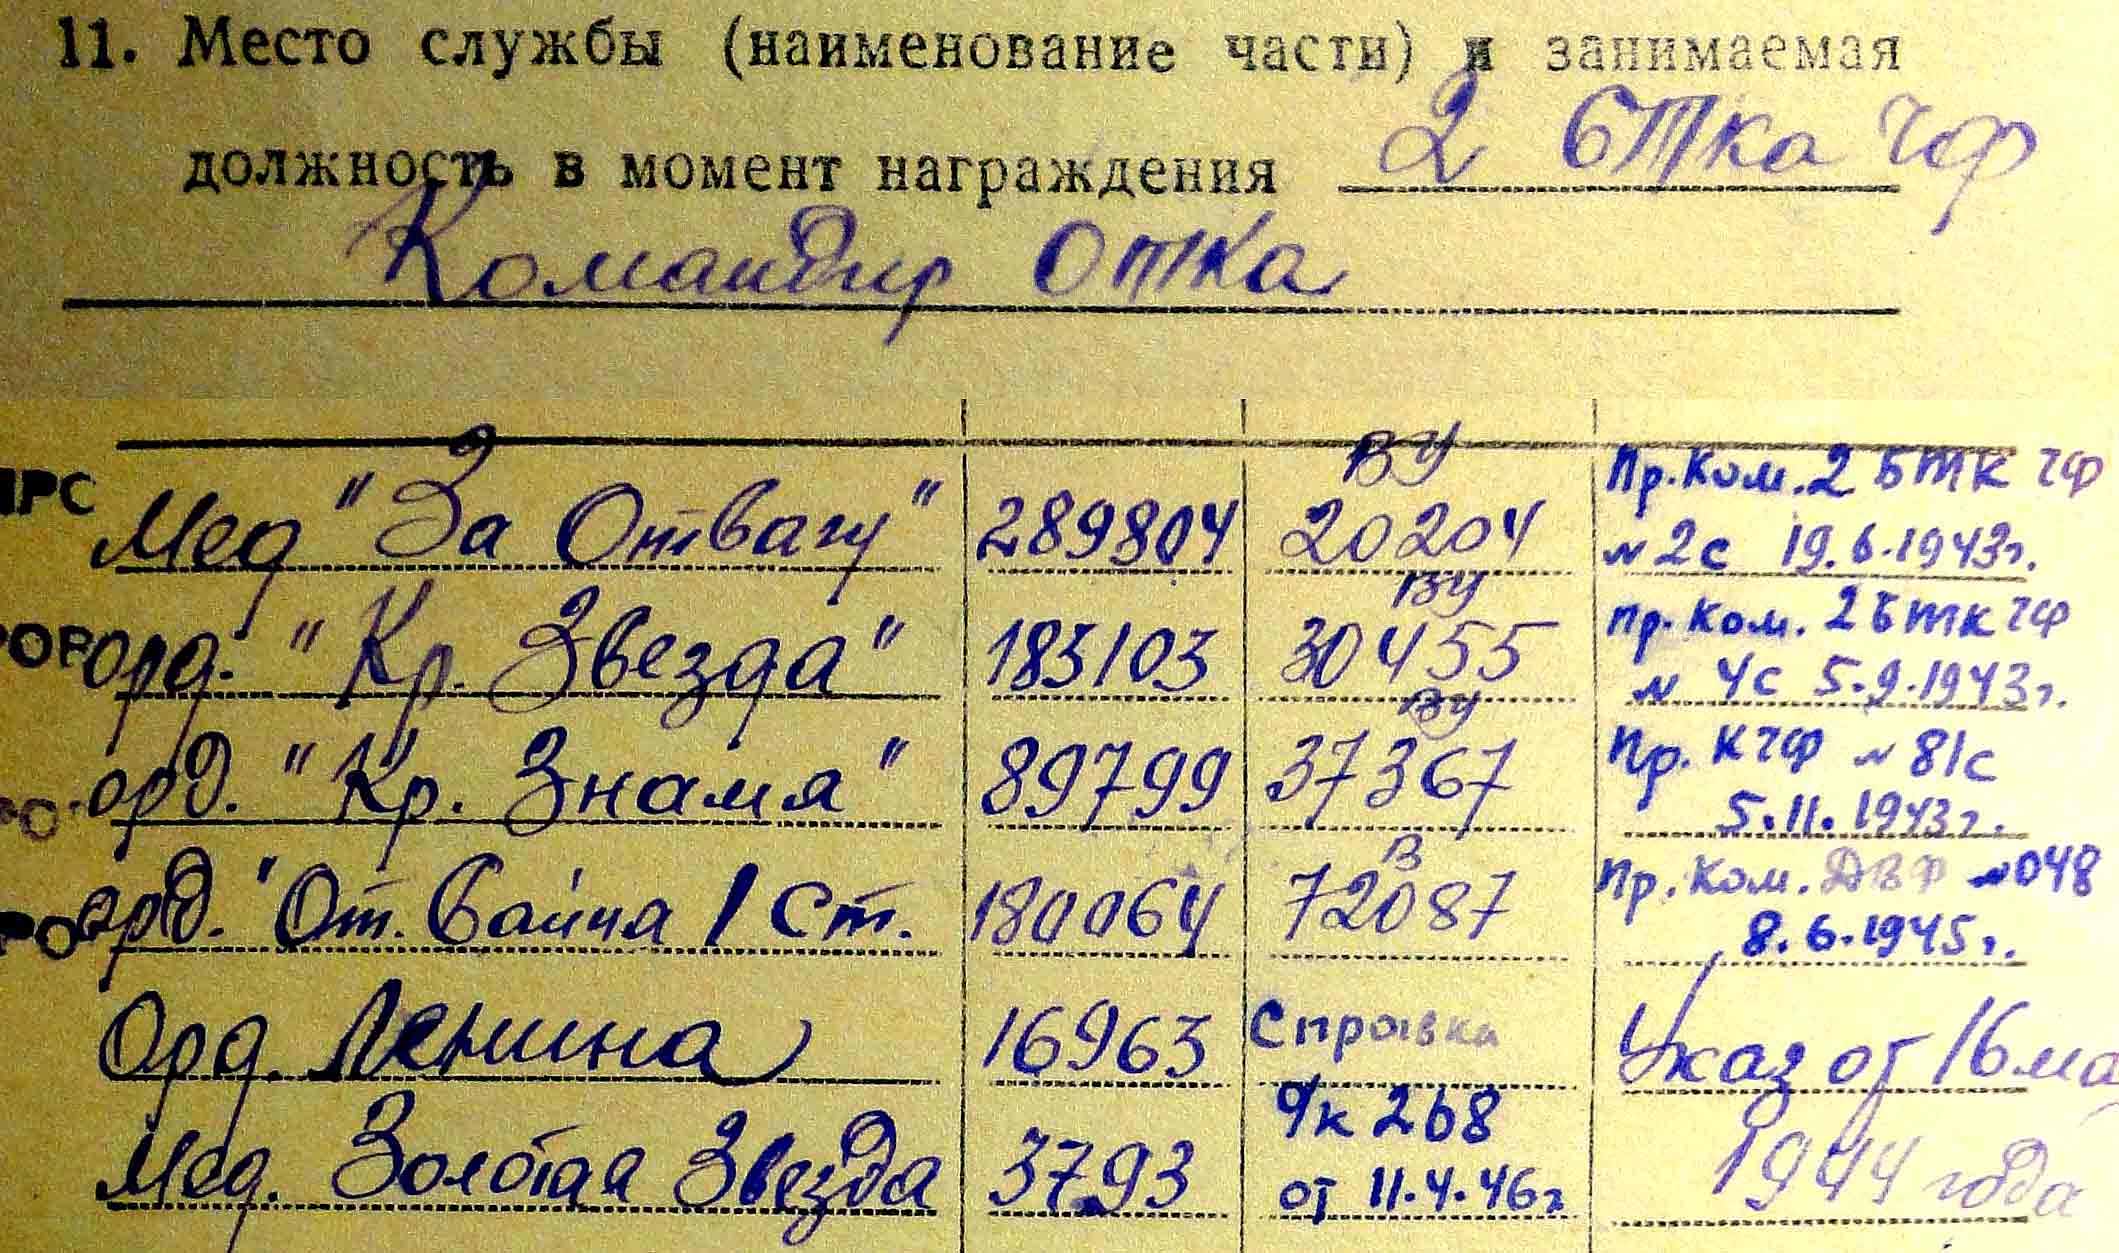 11. Место службы (наименование части) и занимаемая
должность в момент награждения 2 бТка ЧФ
Командир отка
Мед "За Отвагу" 289804 ВУ 20204 Пр. Ком. 2 БТК ЧФ
№ 2с 19.6.1943г.
орд. "Кр. Звезда" 183103 ВУ 30455 Пр. Ком. 2 БТК ЧФ
№ 4с 5.9.1943г.
орд. "Кр. Знамя" 89799 ВУ 37367 Пр. КЧФ № 81с
5.11.1943г.
орд. "От. Война 1 ст. 180064 В 72087 Пр. Ком. ДВФ №048
8.6.1945г.
Орд. Ленина 16963 Справка Указ от 16 ма
Мед. Золотая Звезда 3793 Ук 268 1944 года
от 11.4.46г